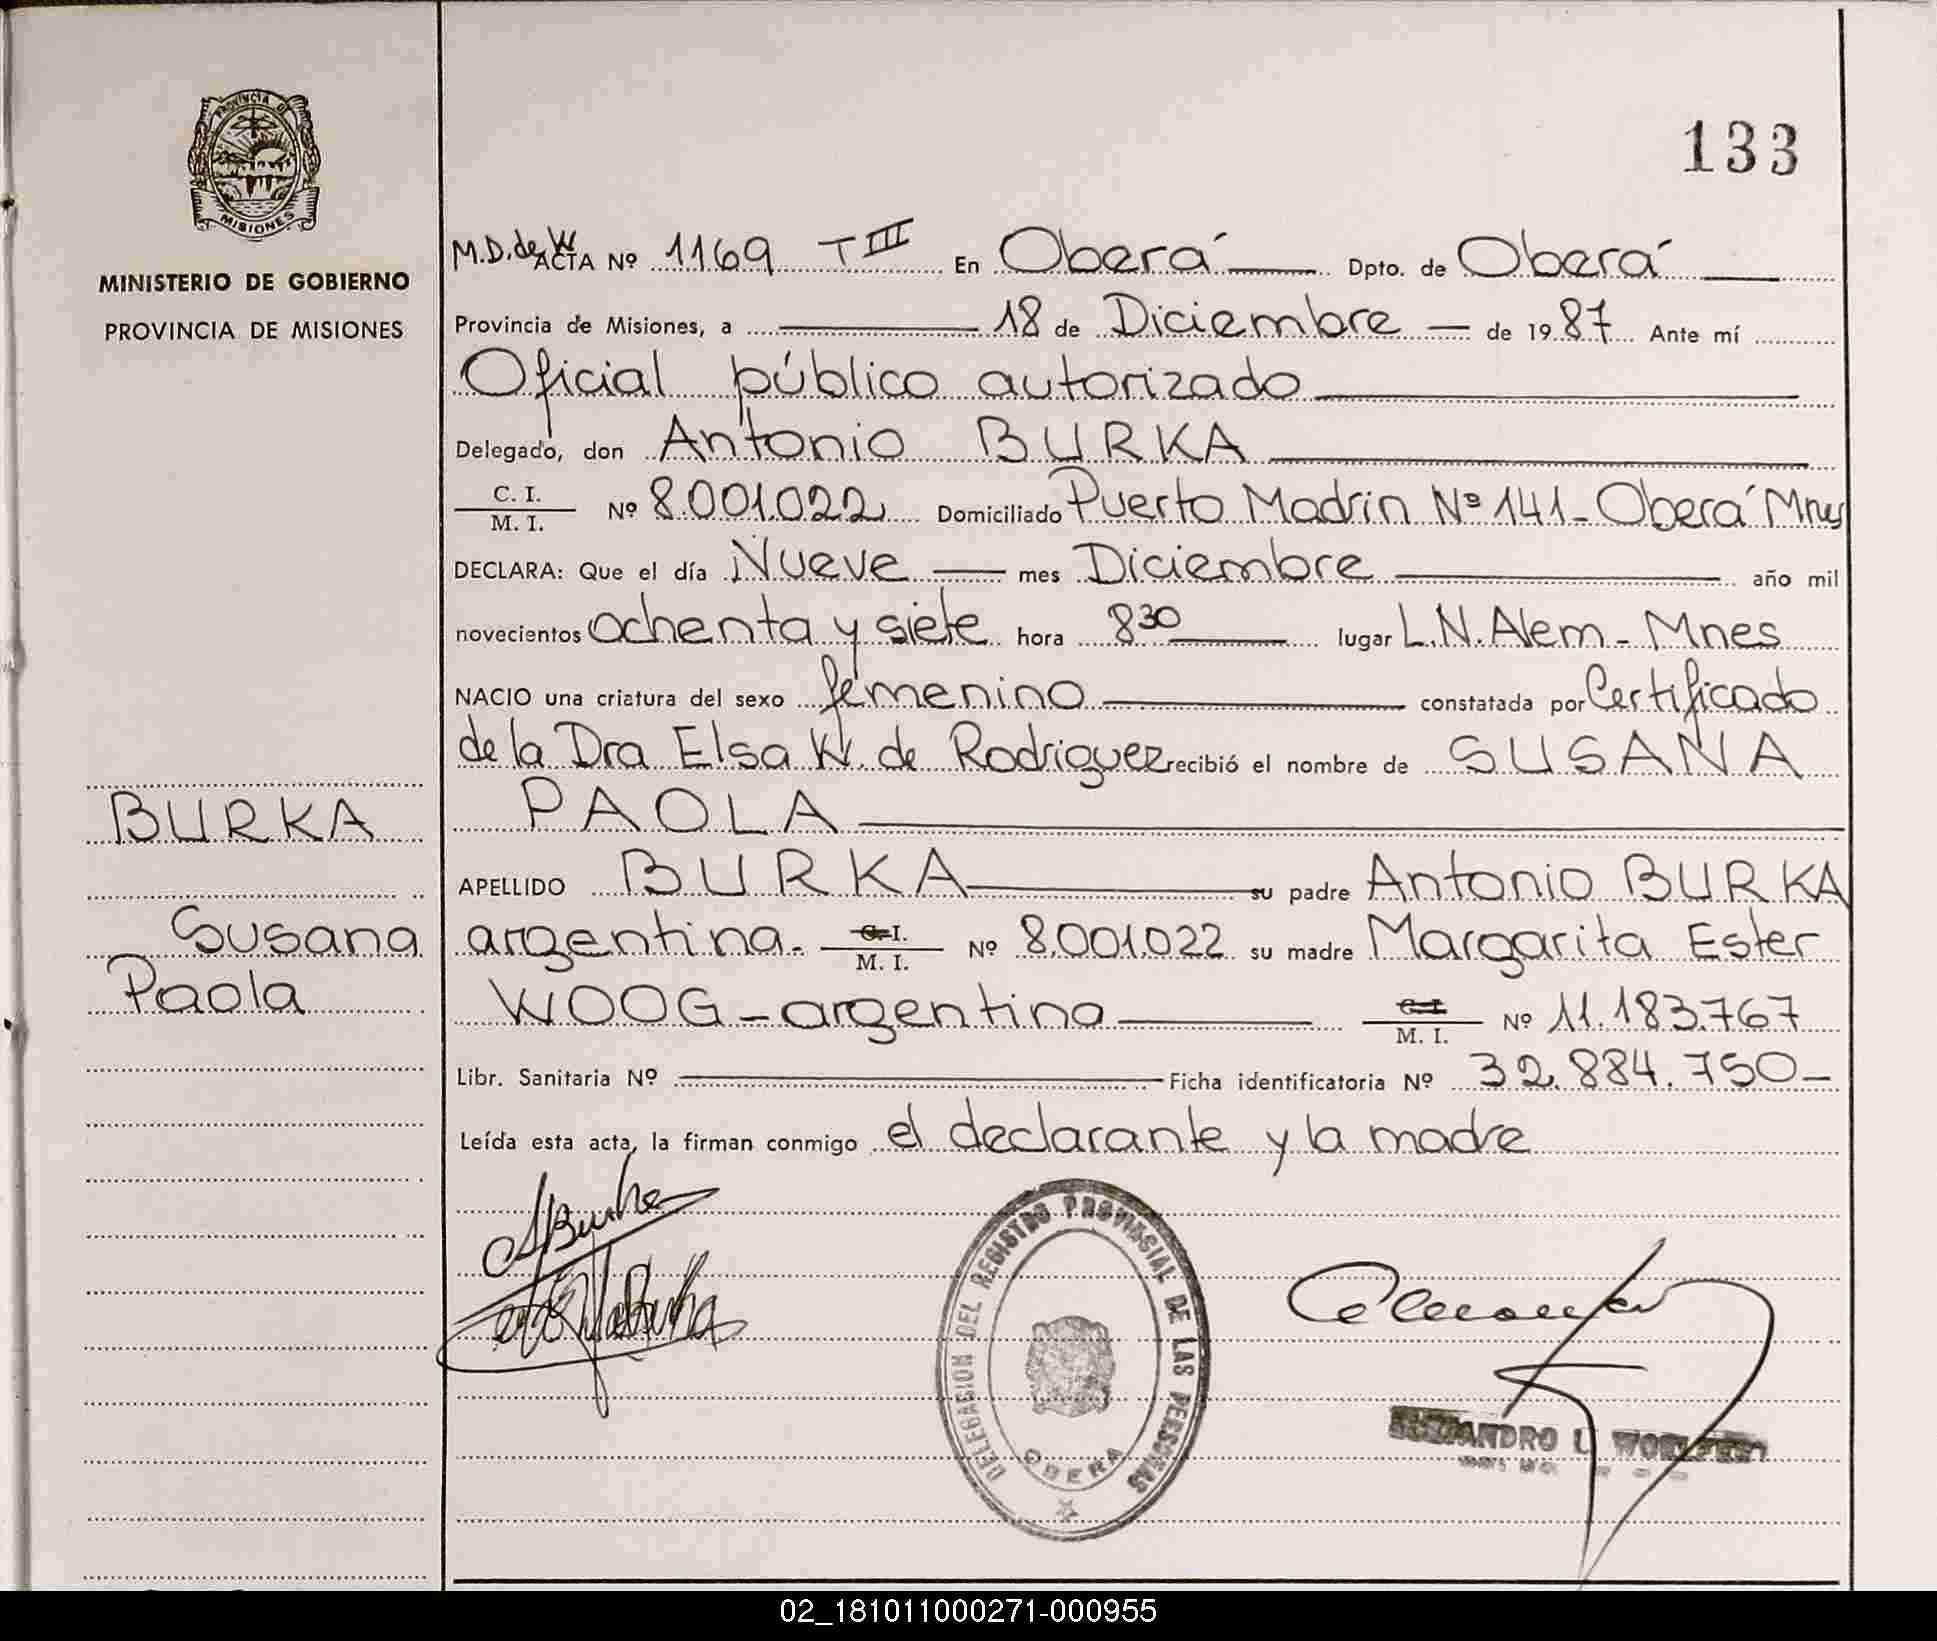 PROVINCIA DE
MISIONES
MINISTERIO DE GOBIERNO
PROVINCIA DE MISIONES
BURKA
Susana
Paola
133
M.D. de W
ACTA Nº 1169 T III En Oberá Dpto. de Oberá
Provincia de Misiones, a 18 de Diciembre de 1987 Ante mí
Oficial público autorizado
Delegado, don Antonio BURKA
C. I.
M. I. Nº 8.001.022 Domiciliado Puerto Madrin Nº 141 - Oberá Mnes
DECLARA: Que el día Nueve mes Diciembre año mil
novecientos ochenta y siete hora 8 30 lugar L.N. Alem - Mnes
NACIO una criatura del sexo femenino constatada por Certificado
de la Dra Elsa W. de Rodriguez recibió el nombre de SUSANA
PAOLA
APELLIDO BURKA su padre Antonio BURKA
argentina. C. I.
M. I. Nº 8.001.022 su madre Margarita Ester
WOOG - argentina C. I.
M. I. Nº 11.183.767
Libr. Sanitaria Nº Ficha identificatoria Nº 32.884.750 -
Leída esta acta, la firman conmigo el declarante y la madre
ABurka
DELEGACION DEL REGISTRO PROVINCIAL DE LAS PERSONAS
OBERA
02_181011000271-000955